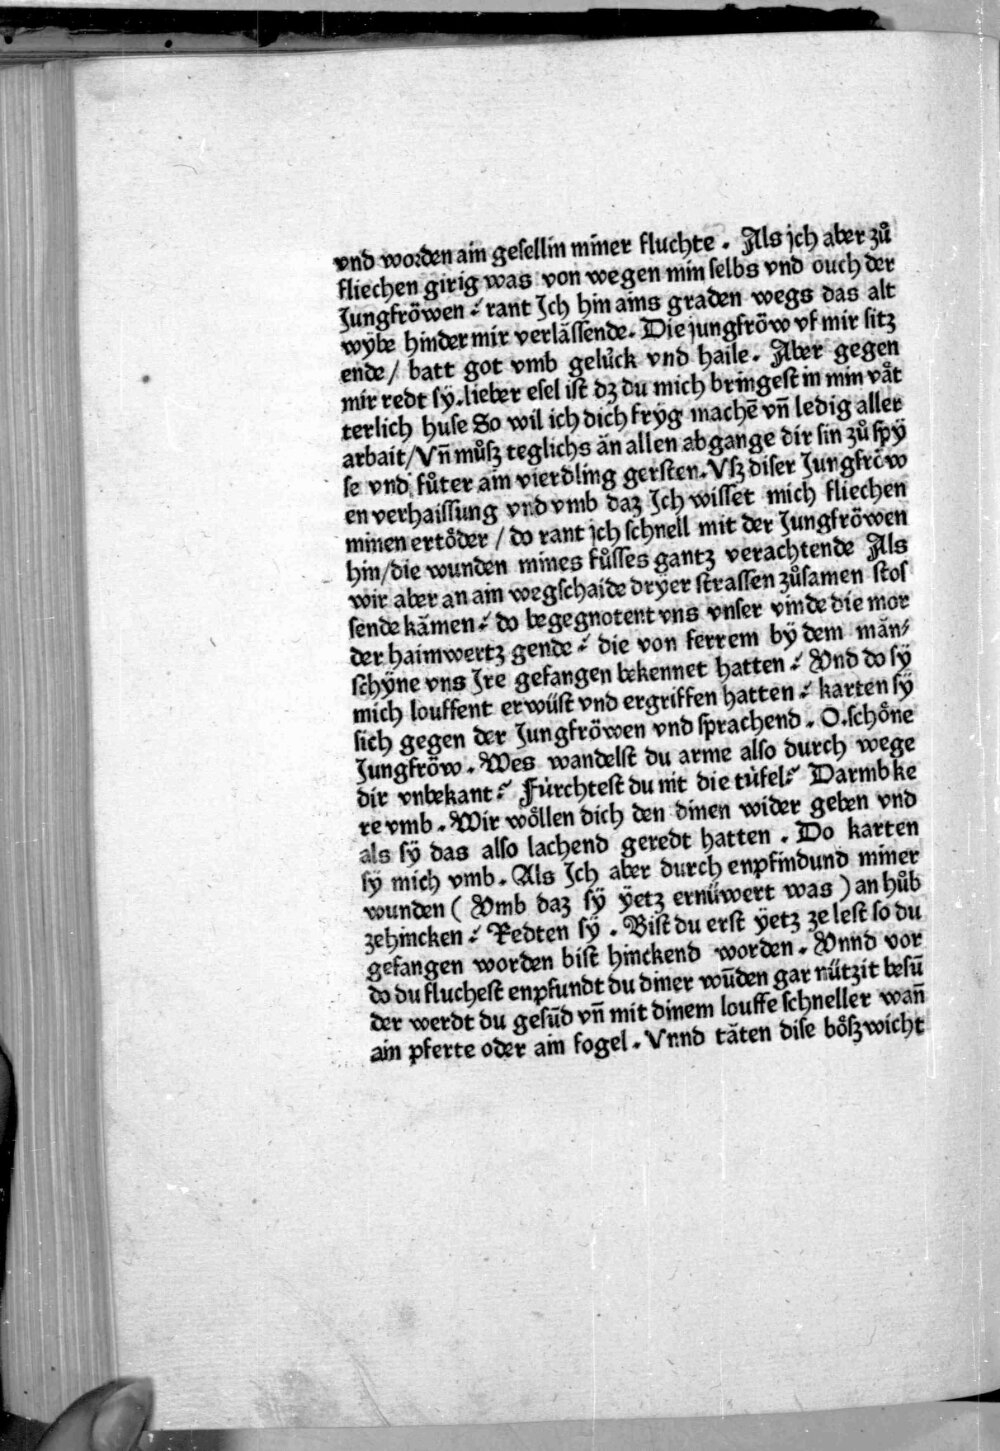 vnd worden ain gesellin miner fluchte . Als jch aber zů
fliechen girig was von wegen min selbs vnd ouch der
Jungfröwen : rant Jch hin ains graden wegs das alt
wÿbe hinder mir verlässende . Die jungfröw vf mir sitz
ende / batt got vmb gelück vnd haile . Aber gegen
mir redt sÿ . lieber esel ist dz du mich bringest in min vät
terlich huse So wil ich dich frÿg machē vn̄ ledig aller
arbait / Vn̄ můsz teglichs än allen abgange dir sin zů spÿ
se vnd fůter ain vierdling gersten . Vsz diser Jungfröw
en verhaissung vnd vmb daz Jch wisset mich fliechen
minen ertöder / do rant jch schnell mit der Jungfröwen
hin / die wunden mines fůsses gantz verachtende Als
wir aber an ain wegschaide drÿer strassen zůsamen stos
sende kämen : do begegnotent vns vnser vinde die mor
der haimwertz gende : die von ferrem bÿ dem män⸗
schÿne vns Jre gefangen bekennet hatten : Vnd do sÿ
mich louffent erwüst vnd ergriffen hatten : karten sÿ
sich gegen der Jungfröwen vnd sprachend . O . schöne
Jungfröw . Wes wandelst du arme also durch wege
dir vnbekant : Fürchtest du nit die tüfel : Darmb ke
re vmb . Wir wöllen dich den dinen wider geben vnd
als sÿ das also lachend geredt hatten . Do karten
sÿ mich vmb . Als Jch aber durch enpfindund miner
wunden ( Vmb daz sÿ ÿetz ernüwert was ) an hůb
zehincken : Redten sÿ . Bist du erst ÿetz ze lest so du
gefangen worden bist hinckend worden . Vnnd vor
do du fluchest enpfundt du diner wūden gar nützit besū
der werdt du gesūd vn̄ mit dinem louffe schneller wan̄
ain pferte oder ain fogel . Vnnd täten dise böszwicht